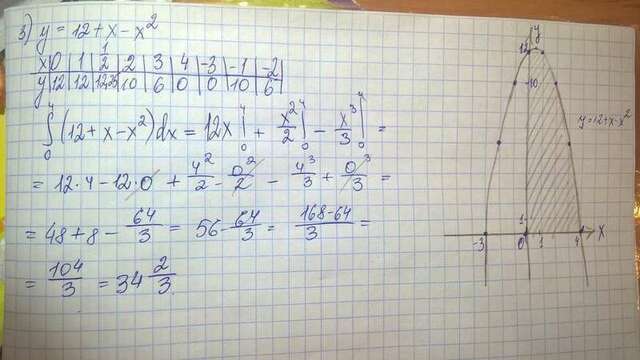 3) y = 12 + x - x²
x | 0 | 1 | 1/2 | 2 | 3 | 4 | -3 | -1 | -2
y | 12 | 12 | 12,25 | 10 | 6 | 0 | 0 | 10 | 6
∫₀⁴ (12 + x - x²) dx = 12x |₀⁴ + x²/2 |₀⁴ - x³/3 |₀⁴ =
= 12·4 - 12·0 + 4²/2 - 0²/2 - 4³/3 + 0³/3 =
= 48 + 8 - 64/3 = 56 - 64/3 = (168-64)/3 =
= 104/3 = 34 2/3
y
12
10
y=12+x-x²
1
-3 0 1 4 x